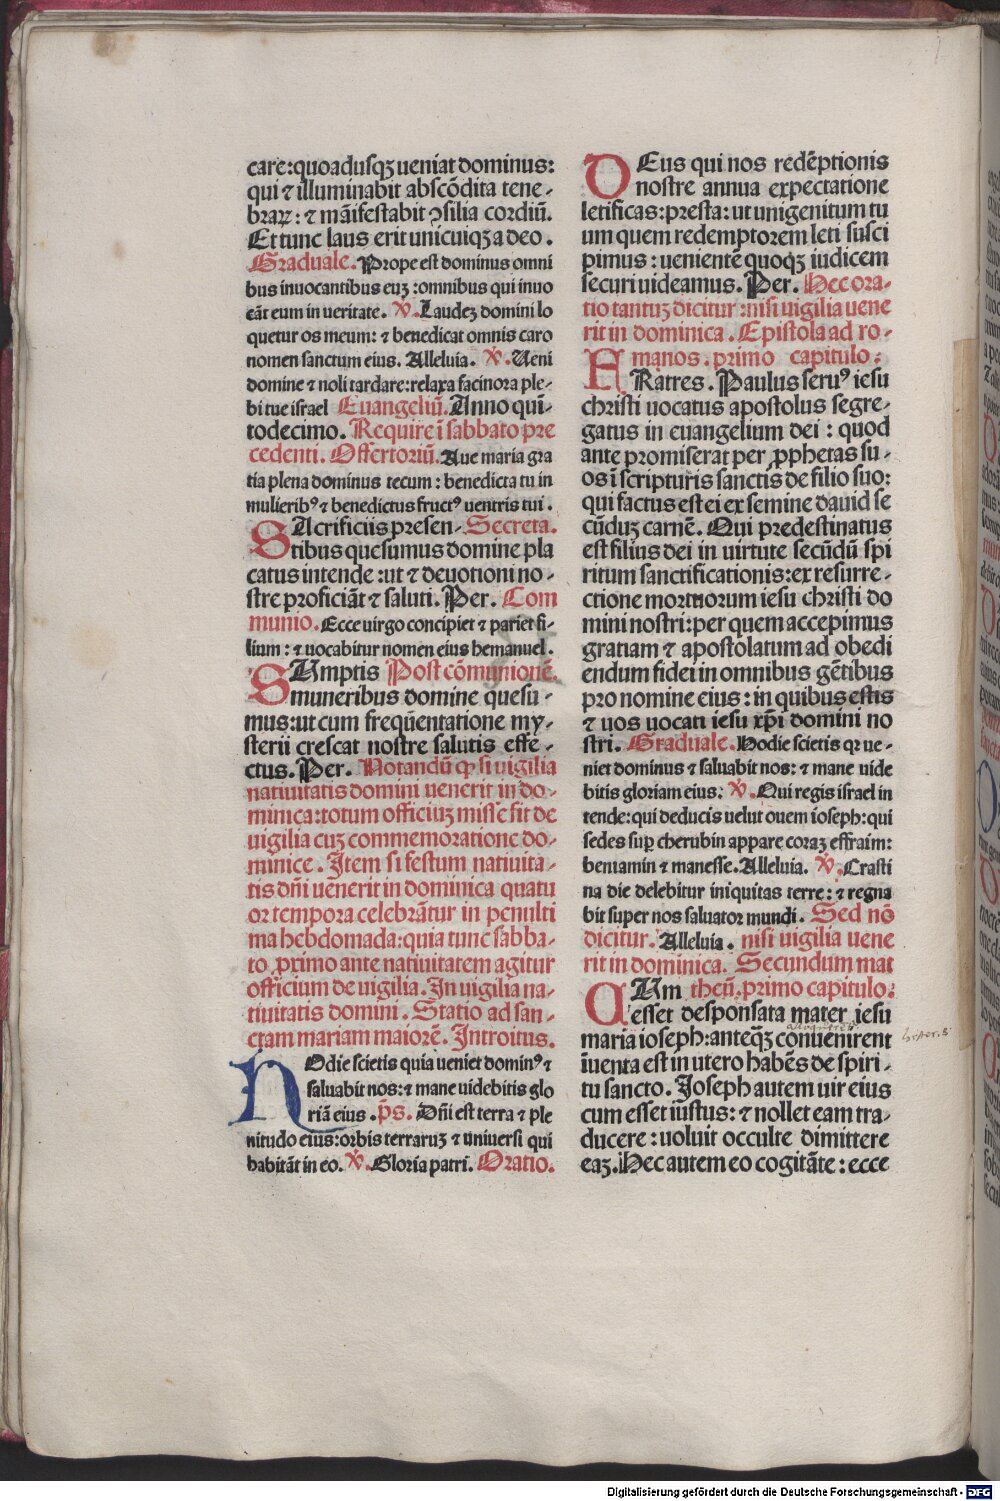 care:quoadusqꝫ ueniat dominus:
qui ⁊ illuminabit abscõdita tene-
braꝝ: ⁊ mãifestabit ↄsilia cordiũ.
Et tunc laus erit unicuiqꝫ a deo.
Graduale. Prope est dominus omni
bus inuocantibus euꝫ: omnibus qui inuo
cãt eum in ueritate. ℣. Laudeꝫ domini lo
quetur os meum: ⁊ benedicat omnis caro
nomen sanctum eius. Alleluia. ℣. Ueni
domine ⁊ noli tardare: relaxa facinora ple-
bi tue israel Euangeliũ. Anno qui̅-
todecimo. Require ĩ sabbato pre
cedenti. Offertoriũ. Aue maria gra
tia plena dominus tecum: benedicta tu in
mulieribꝰ ⁊ benedictus fructꝰ uentris tui.
SAcrificiis presen- Secreta.
tibus quesumus domine pla
catus intende: ut ⁊ deuotioni no-
stre proficiãt ⁊ saluti. Per. Com
munio. Ecce uirgo concipiet ⁊ pariet fi-
lium: ⁊ uocabitur nomen eius hemanuel.
SUmptis Post cõmunionẽ.
muneribus domine quesu-
mus: ut cum freqũentatione my-
sterii crescat nostre salutis effe-
ctus. Per. Notandũ ꝙ si uigilia
natiuitatis domini uenerit in do-
minica: totum officiuꝫ misse̅ fit de
uigilia cuꝫ commemoratione do-
minice. Item si festum natiuita-
tis dñi uenerit in dominica quatu
or tempora celebrãtur in penulti
ma hebdomada: quia tunc sabba-
to ꝓximo ante natiuitatem agitur
officium de uigilia. In uigilia na-
tiuitatis domini. Statio ad san-
ctam mariam maiorẽ. Introitus.
HOdie scietis quia ueniet dominꝰ ⁊
saluabit nos: ⁊ mane uidebitis glo
riã eius. p̃s. Dñi est terra ⁊ ple
nitudo eius: orbis terraruꝫ ⁊ uniuersi qui
habitãt in eo. ℣. Gloria patri. Oratio.
DEus qui nos redẽptionis
nostre annua expectatione
letificas: presta: ut unigenitum tu
um quem redemptorem leti susci
pimus: uenientẽ quoqꝫ iudicem
securi uideamus. Per. Hec ora-
tio tantuꝫ dicitur: nisi uigilia uene
rit in dominica. Epistola ad ro-
manos. primo capitulo:
FRatres. Paulus seruꝰ iesu
christi uocatus apostolus segre-
gatus in euangelium dei: quod
ante promiserat per ꝓphetas su-
os ĩ scripturis sanctis de filio suo:
qui factus est ei ex semine dauid se
cũduꝫ carnẽ. Qui predestinatus
est filius dei in uirtute secũdũ spi
ritum sanctificationis: ex resurre-
ctione mortuorum iesu christi do
mini nostri: per quem accepimus
gratiam ⁊ apostolatum ad obedi
endum fidei in omnibus gẽtibus
pro nomine eius: in quibus estis
⁊ uos uocati iesu xp̃i domini no
stri. Graduale. Hodie scietis qꝛ ue-
niet dominus ⁊ saluabit nos: ⁊ mane uide
bitis gloriam eius: ℣. Qui regis israel in
tende: qui deducis uelut ouem ioseph: qui
sedes suꝑ cherubin appare coraꝫ effraim:
beniamin ⁊ manesse. Alleluia. ℣. Crasti
na die delebitur iniquitas terre: ⁊ regna
bit super nos saluator mundi. Sed nõ
dicitur. Alleluia. nisi uigilia uene
rit in dominica. Secundum mat
theũ. primo capitulo:
CUm
esset desponsata mater iesu
maria ioseph: anteqꝫ conuenirent
ĩuenta est in utero habẽs de spiri-
tu sancto. Ioseph autem uir eius
cum esset iũstus: ⁊ nollet eam tra-
ducere: uoluit occulte dimittere
eaꝫ. Hec autem eo cogitãte: ecce
Digitalisierung gefördert durch die Deutsche Forschungsgemeinschaft - DFG